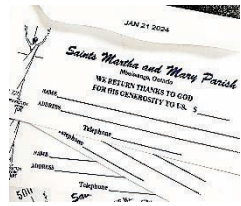 JAN 21 2024
Saints Martha and Mary Parish
Mississauga, Ontario
WE RETURN THANKS TO GOD
FOR HIS GENEROSITY TO US. $
NAME
ADDRESS
Telephone
Telephone
NAME
ADDRESS
Telephone